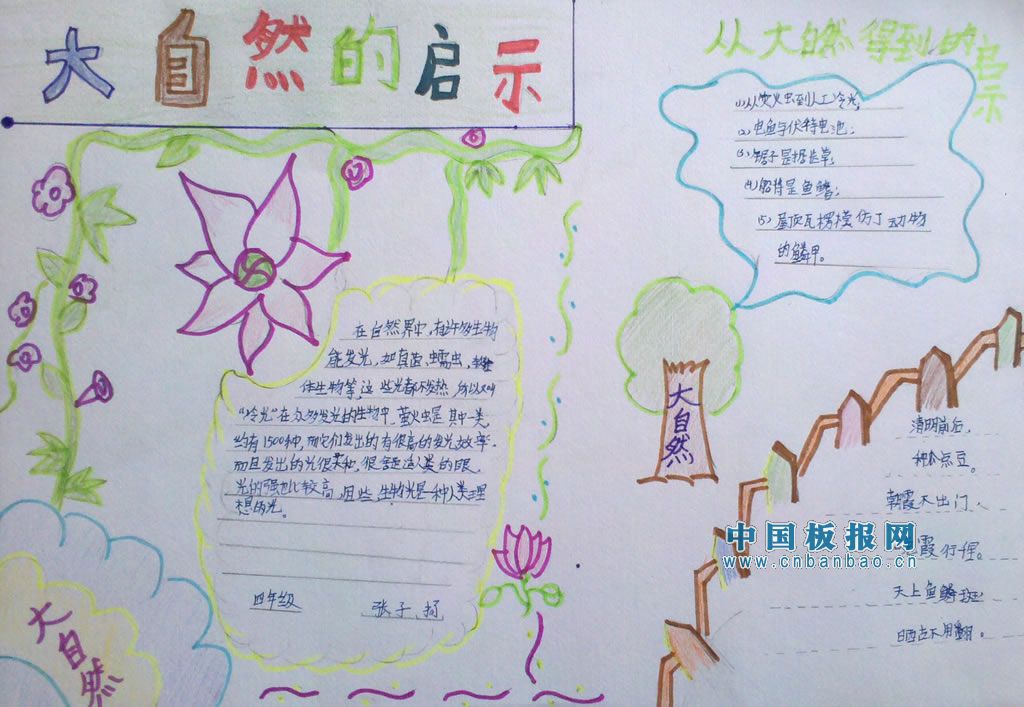 大自然的启示
在自然界中,有许多生物
能发光,如真菌、蠕虫、
体生物等,这些光都不发热,所以又叫
“冷光”在众多发光的生物中,萤火虫是其中一类,
约有1500种,而它们发出的有很高的发光效率.
而且发出的光很柔和,很适合人类的眼,
光的强也比较高,因此,生物光是一种人类理
想的光。
四年级 张子扬
大自然
从大自然得到的启示
(1)从萤火虫到人工冷光;
(2)电鱼与伏特电池;
(3)锯子是锯齿草;
(4)船桨是鱼鳍;
(5)屋顶瓦楞模仿了动物
的鳞甲。
大自然
清明前后,
种瓜点豆。
朝霞不出门、
霞行千里。
天上鱼鳞斑
晒谷不用翻。
中国板报网
www.cnbanbao.cn